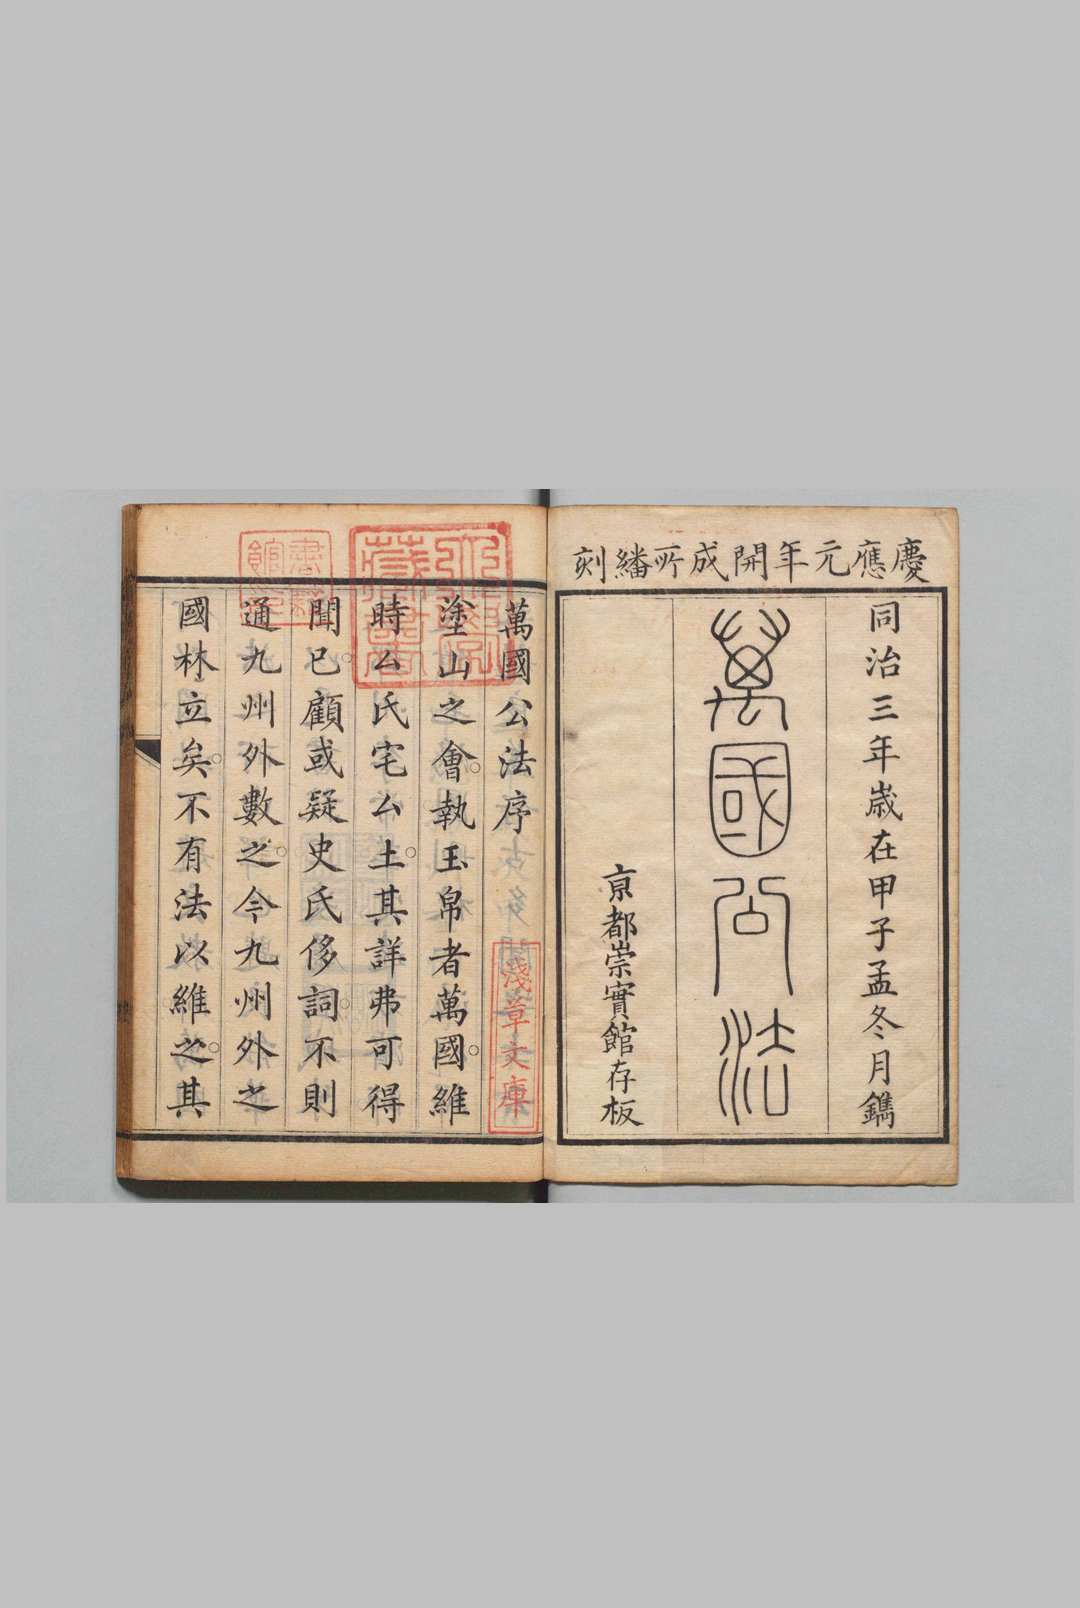 慶應元年開成所繙刻
同治三年歲在甲子孟冬月鐫
萬國公法
京都崇實館存板
萬國公法序
塗山之會執玉帛者萬國維
時厶氏宅厶土其詳弗可得
聞已顧或疑史氏侈詞不則
通九州外數之今九州外之
國林立矣不有法以維之其
淺草文庫